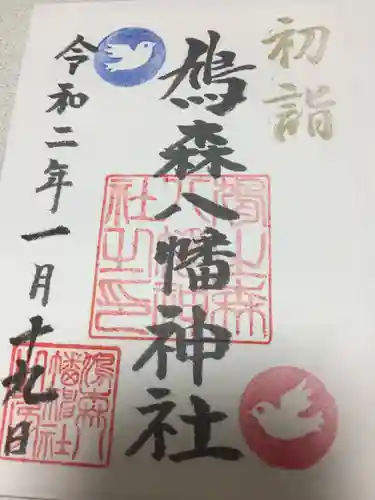 初詣
鳩森八幡神社
令和二年一月十九日